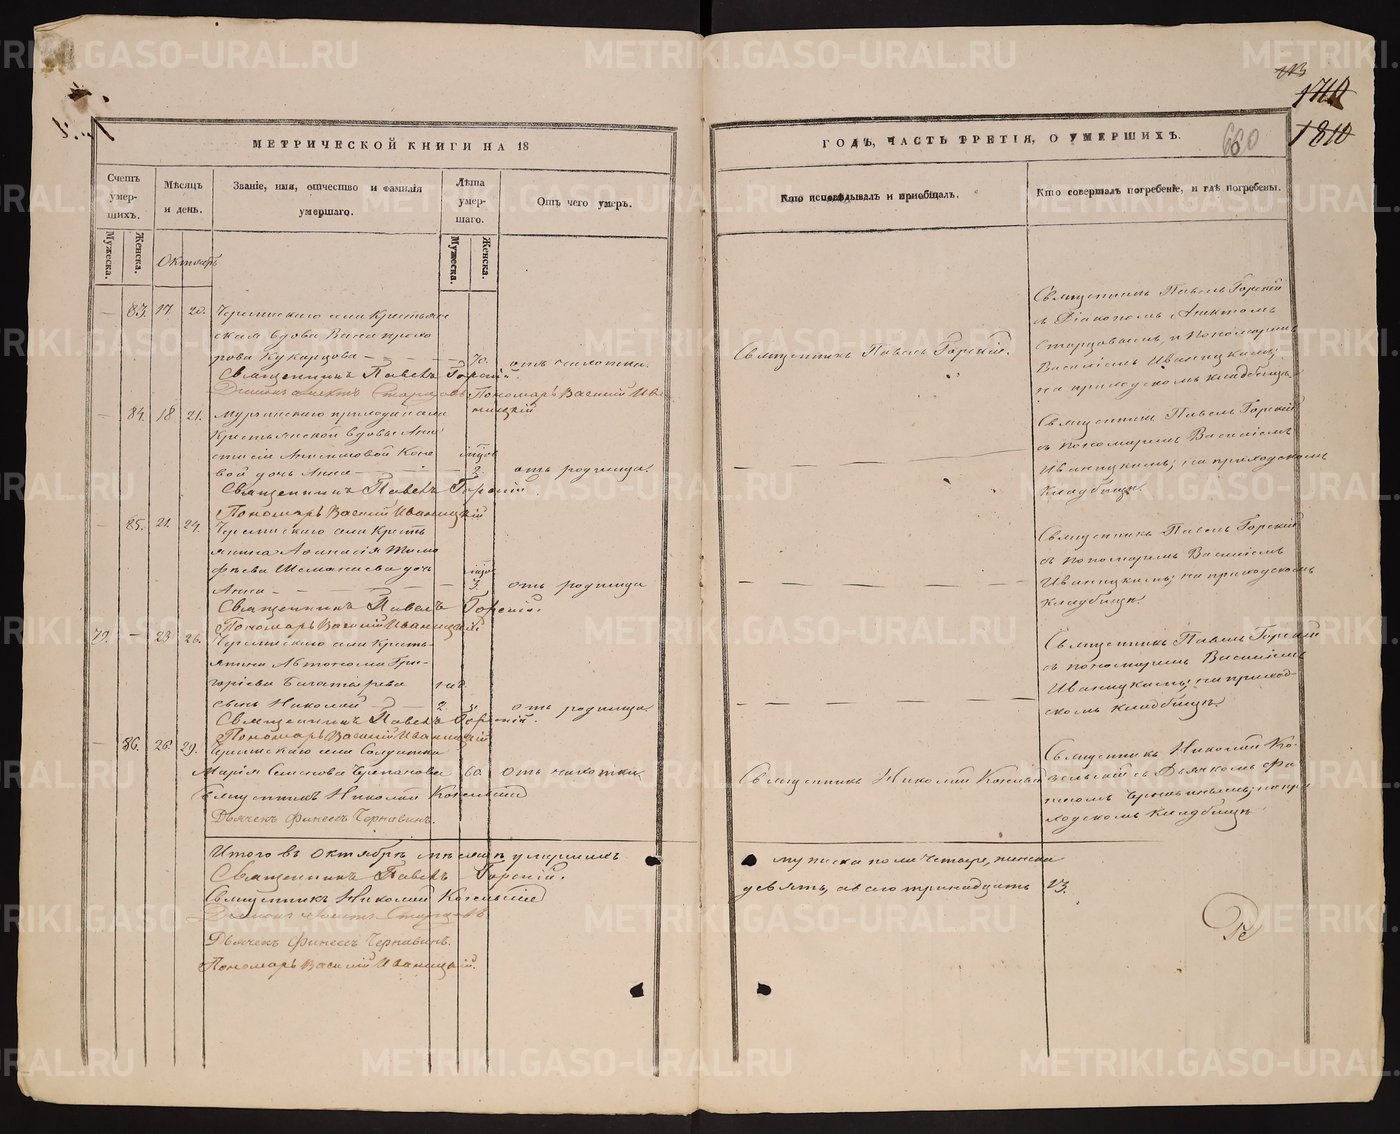 METRIKI.GASO-URAL.RU
1710
1810
680
МЕТРИЧЕСКОЙ КНИГИ НА 18
ГОДЪ, ЧАСТЬ ТРЕТІЯ, О УМЕРШИХЪ.
Счетъ умерших.
Мѣсяцъ и день.
Званіе, имя, отчество и фамилія умершаго.
Лѣта умершаго.
Отъ чего умеръ.
Кто исповѣдывалъ и пріобщалъ.
Кто совершалъ погребеніе, и гдѣ погребены.
Мужеска.
Женска.
Мужеска.
Женска.
Октябрь
— 83. 17 20.
скал вдова Васса Прохо
рова Кукарцова — 70. отъ чахотки.
Священникъ Павелъ Горскій.
Священникъ Павелъ Горскій
съ Діакономъ
Старцовымъ, и Пономаремъ
Василіемъ Иваницкимъ;
на приходскомъ кладбищѣ.
Священникъ Павелъ Горскій.
Пономарь Василій Иваницкій
— 84. 18 21. прихода села
Крестьянской вдовы Ана
стасіи
вой дочь Анна — 2. отъ родимца.
Священникъ Павелъ Горскій
съ пономаремъ Василіемъ
Иваницкимъ; на приходскомъ
кладбищѣ.
Священникъ Павелъ Горскій.
Пономарь Василій Иваницкій
— 85. 21. 24. села Кресть
янина Аѳанасія Тимо
фѣева дочь
Анна — 3. отъ родимца
Священникъ Павелъ Горскій
съ пономаремъ Василіемъ
Иваницкимъ; на приходскомъ
кладбищѣ.
Священникъ Павелъ Горскій.
Пономарь Василій Иваницкій
79. — 23 26. села Кресть-
янина Автонома Гри-
горіева Богатырева
сынъ Николай — 2. отъ родимца.
Священникъ Павелъ Горскій
съ пономаремъ Василіемъ
Иваницкимъ; на приход-
скомъ кладбищѣ.
Священникъ Павелъ Горскій.
Пономарь Василій Иваницкій
— 86. 26. 29. села Солдатка
Марія Семенова Черепанова 60. отъ чахотки.
Священникъ Николай
Священникъ Николай
съ Дьячкомъ Фи
неесомъ Чернавинымъ; на при
ходскомъ кладбищѣ.
Священникъ Николай
Дьячекъ Финеесъ Чернавинъ.
Итого въ Октябрѣ мѣсяцѣ умершихъ мужеска пола четыре, женска
девять, а всего тринадцать 13.
Священникъ Павелъ Горскій.
Священникъ Николай
Дьячекъ Финеесъ Чернавинъ.
Пономарь Василій Иваницкій.